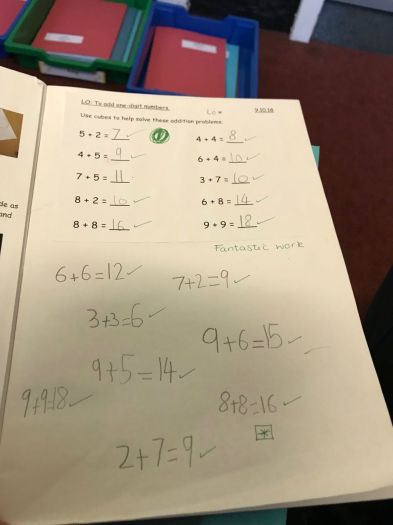 LO: To add one-digit numbers.
Lo *
9.10.18
Use cubes to help solve these addition problems.
5 + 2 = 7
4 + 4 = 8
4 + 5 = 9
6 + 4 = 10
7 + 5 = 11
3 + 7 = 10
8 + 2 = 10
6 + 8 = 14
8 + 8 = 16
9 + 9 = 18
Fantastic work
6+6=12
7+2=9
3+3=6
9+6=15
9+5=14
9+9=18
8+8=16
2+7=9